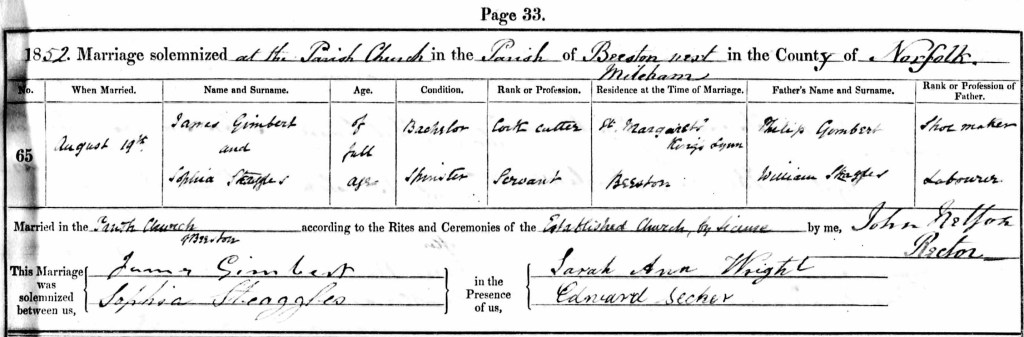 Page 33.
1852. Marriage solemnized at the Parish Church in the Parish of Beeston next Mileham in the County of Norfolk.
No. When Married. Name and Surname. Age. Condition. Rank or Profession. Residence at the Time of Marriage. Father's Name and Surname. Rank or Profession of Father.
65 August 19th James Gimbert of Bachelor Cork cutter St. Margarets Kings Lynn Philip Gimbert Shoe maker
and full
Sophia age Spinster Servant Beeston William Labourer
Married in the Parish Church of Beeston according to the Rites and Ceremonies of the Established Church, by licence by me, John
Rector
This Marriage was solemnized between us, James Gimbert in the Presence of us, Sarah Ann Wright
Sophia Steaggles Edward Secker